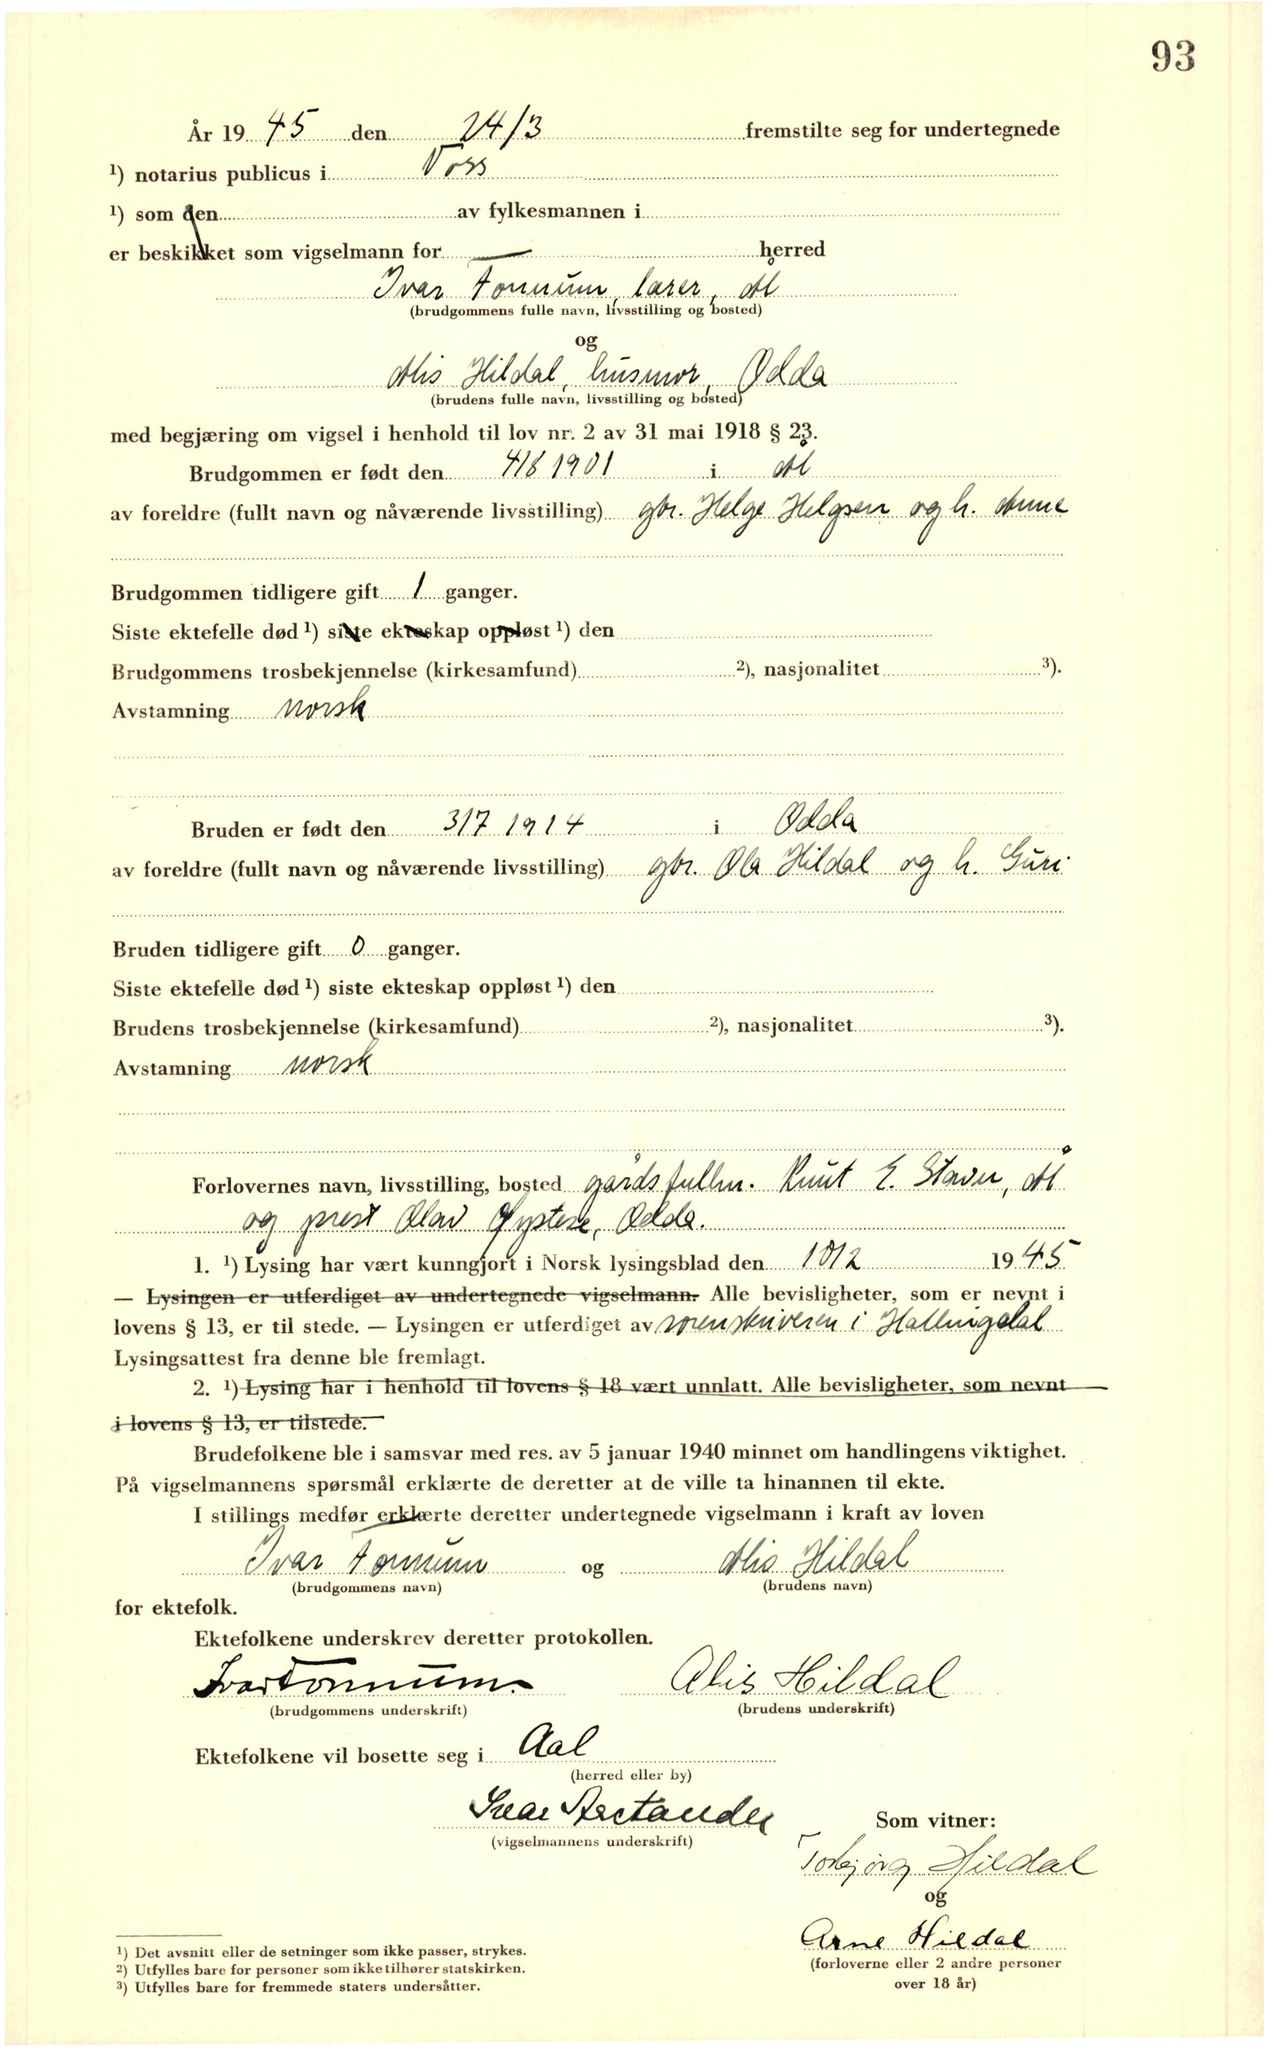 93
År 1945 den 24/3 fremstilte seg for undertegnede
¹) notarius publicus i Voss
¹) som den av fylkesmannen i
er beskikket som vigselmann for — herred
Ivar Tormum, lærer, Ål
(brudgommens fulle navn, livsstilling og bosted)
og
Alis Hildal, husmor, Odda
(brudens fulle navn, livsstilling og bosted)
med begjæring om vigsel i henhold til lov nr. 2 av 31 mai 1918 § 23.
Brudgommen er født den 4/8 1901 i Ål
av foreldre (fullt navn og nåværende livsstilling) gbr. Helge Helgsen og h. Anne
Brudgommen tidligere gift 1 ganger.
Siste ektefelle død ¹) siste ekteskap oppløst ¹) den
Brudgommens trosbekjennelse (kirkesamfund) ²), nasjonalitet ³).
Avstamning norsk
Bruden er født den 3/7 1914 i Odda
av foreldre (fullt navn og nåværende livsstilling) gbr. Ola Hildal og h. Guri
Bruden tidligere gift 0 ganger.
Siste ektefelle død ¹) siste ekteskap oppløst ¹) den
Brudens trosbekjennelse (kirkesamfund) ²), nasjonalitet ³).
Avstamning norsk
Forlovernes navn, livsstilling, bosted gårdsfullm. Knut E. Staver, Ål
og prest Olav Øystese, Odda.
1. ¹) Lysing har vært kunngjort i Norsk lysingsblad den 10/2 1945
— Lysingen er utferdiget av undertegnede vigselmann. Alle bevisligheter, som er nevnt i
lovens § 13, er til stede. — Lysingen er utferdiget av sorenskriveren i Hallingdal
Lysingsattest fra denne ble fremlagt.
2. ¹) Lysing har i henhold til lovens § 18 vært unnlatt. Alle bevisligheter, som nevnt
i lovens § 13, er tilstede.
Brudefolkene ble i samsvar med res. av 5 januar 1940 minnet om handlingens viktighet.
På vigselmannens spørsmål erklærte de deretter at de ville ta hinannen til ekte.
I stillings medfør erklærte deretter undertegnede vigselmann i kraft av loven
Ivar Tormum og Alis Hildal
(brudgommens navn) (brudens navn)
for ektefolk.
Ektefolkene underskrev deretter protokollen.
Ivar Tormum. Alis Hildal
(brudgommens underskrift) (brudens underskrift)
Ektefolkene vil bosette seg i Aal
(herred eller by)
Ivar Arctander Som vitner:
(vigselmannens underskrift)
Torbjørg Hildal
og
Arne Hildal
(forloverne eller 2 andre personer
over 18 år)
¹) Det avsnitt eller de setninger som ikke passer, strykes.
²) Utfylles bare for personer som ikke tilhører statskirken.
³) Utfylles bare for fremmede staters undersåtter.